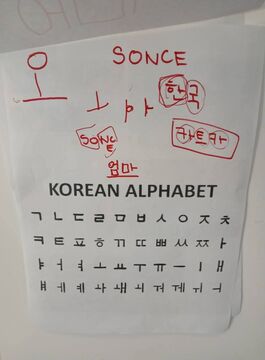 SONCE
오
한국
SONCE
카트카
엄마
KOREAN ALPHABET
ㄱ ㄴ ㄷ ㄹ ㅁ ㅂ ㅅ ㅇ ㅈ ㅊ
ㅋ ㅌ ㅍ ㅎ ㄲ ㄸ ㅃ ㅆ ㅉ ㅏ
ㅑ ㅓ ㅕ ㅗ ㅛ ㅜ ㅠ ㅡ ㅣ ㅐ
ㅒ ㅔ ㅖ ㅘ ㅙ ㅚ ㅝ ㅞ ㅟ ㅢ